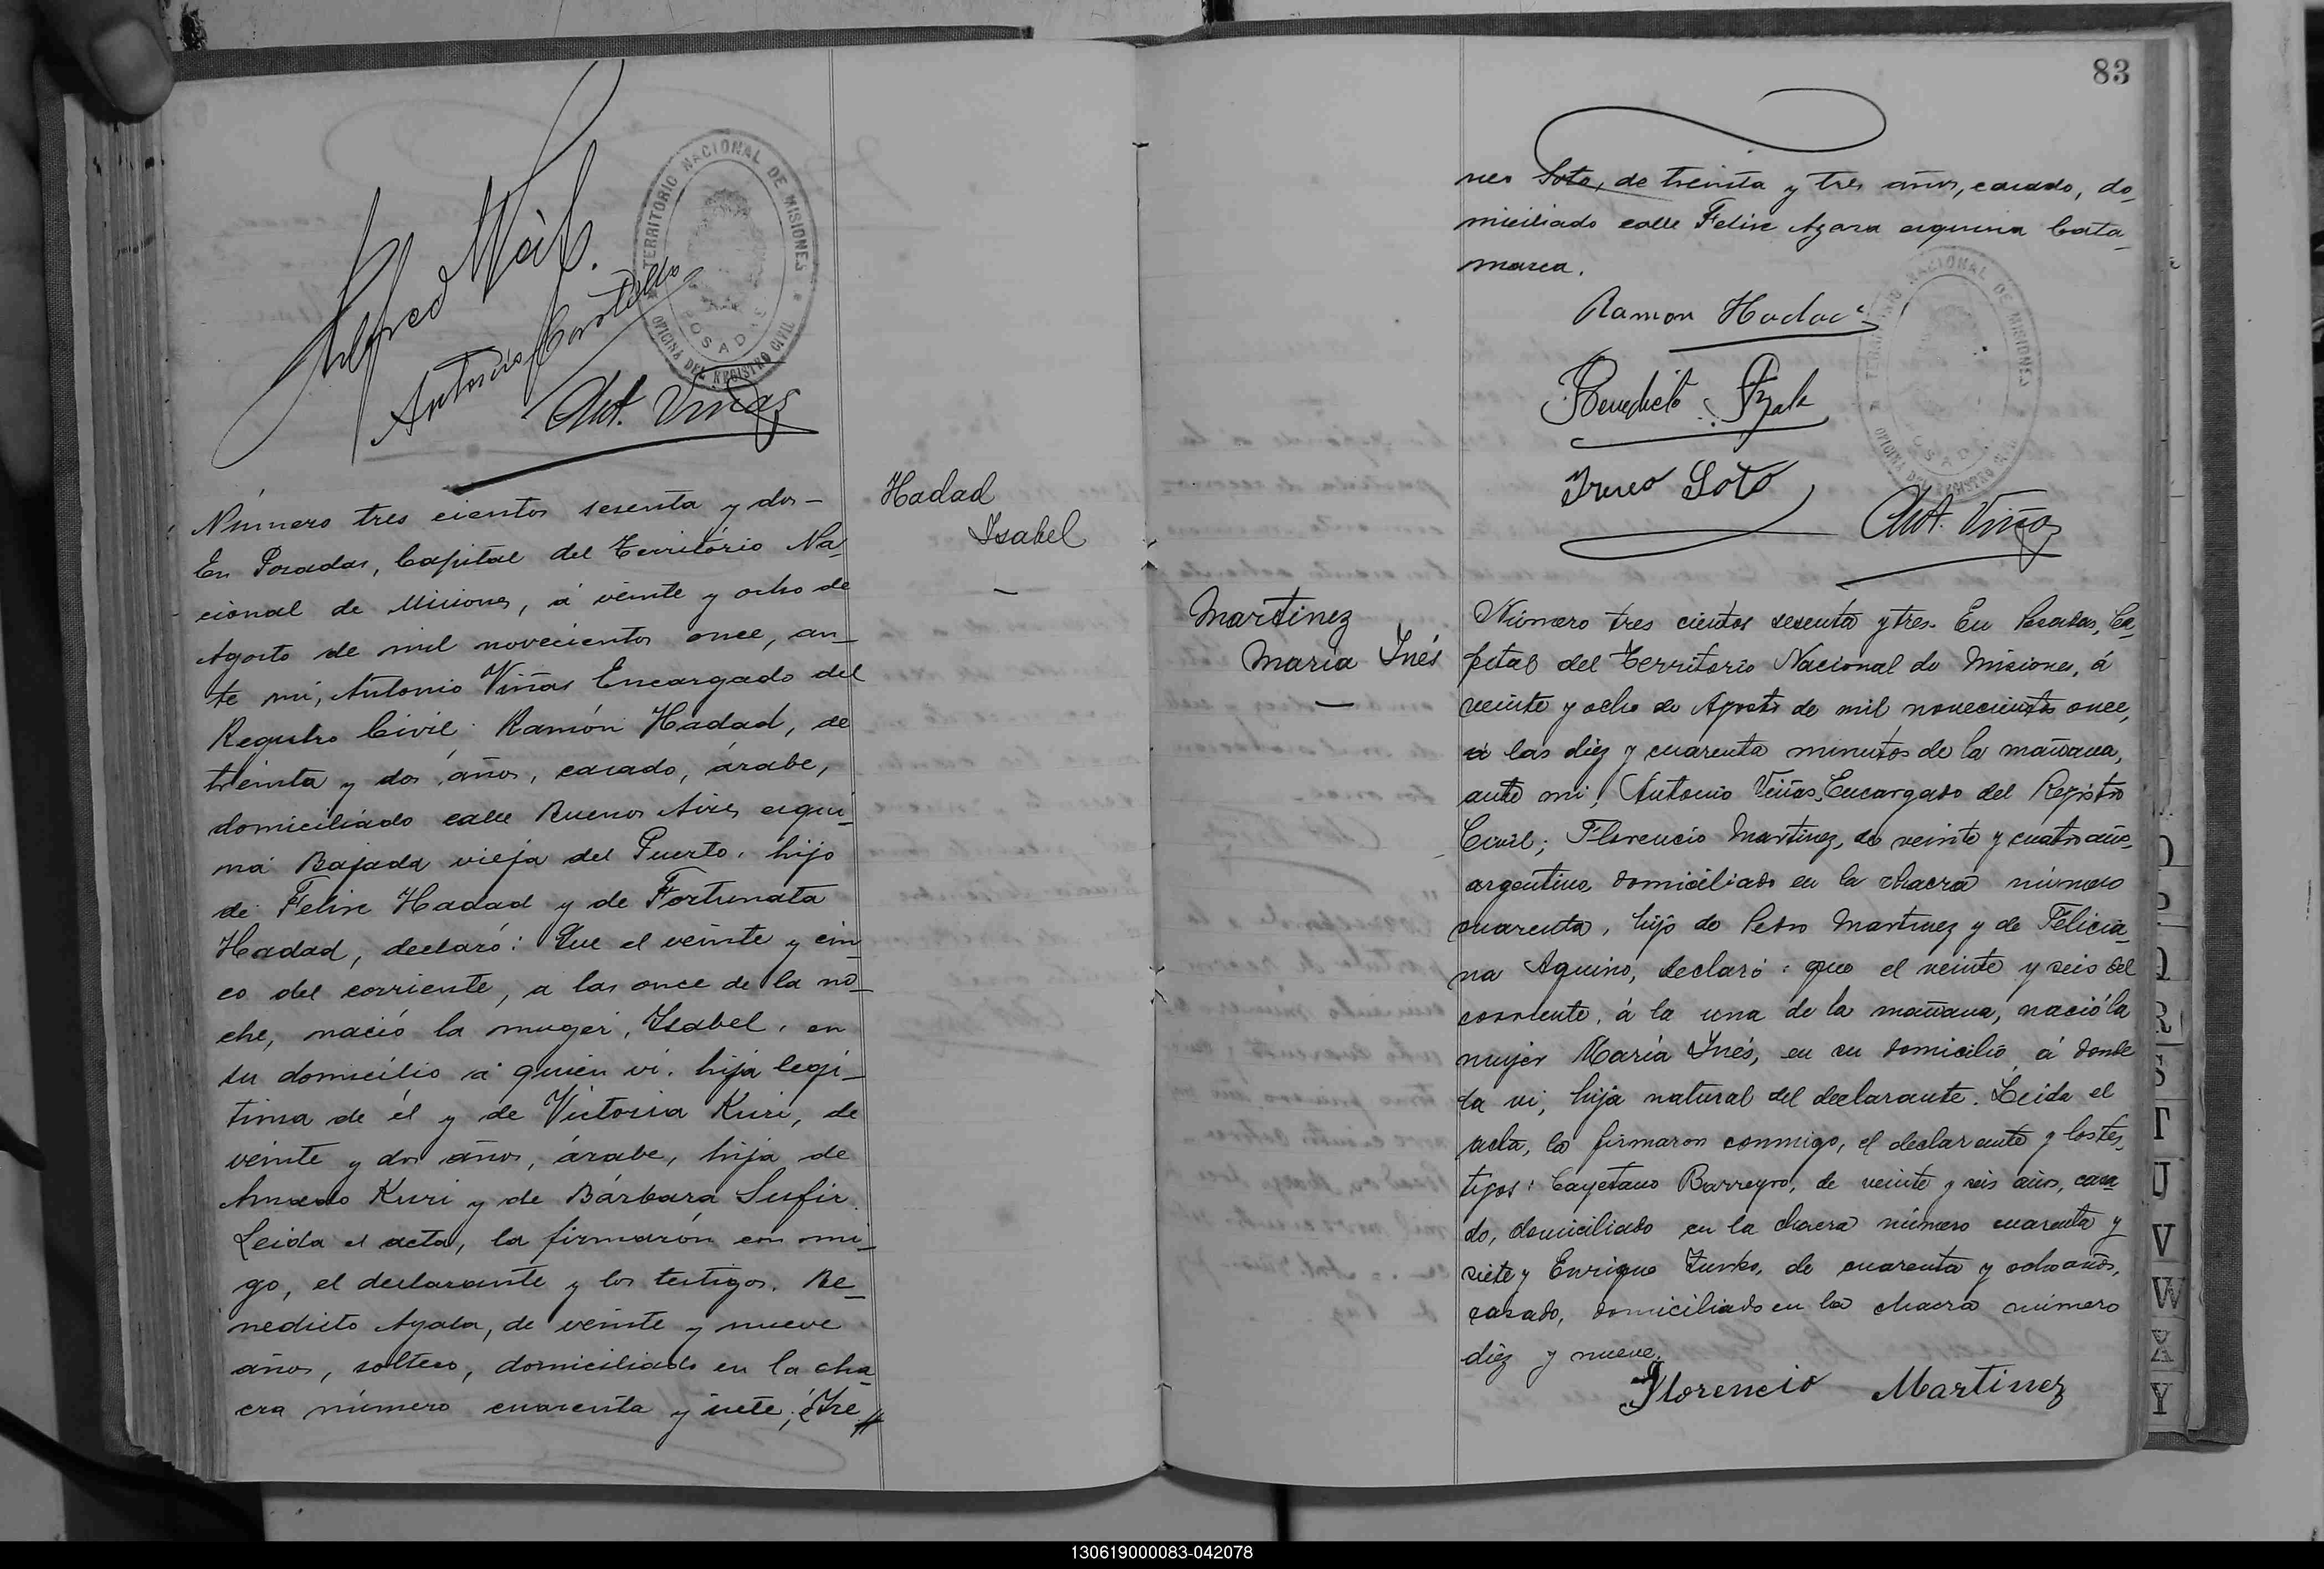 Alfred
Antonio
Ant. Viñas
TERRITORIO NACIONAL DE MISIONES
POSADAS
OFICINA DEL REGISTRO CIVIL
Hadad
Isabel
Número tres cientos sesenta y dos—
En Posadas, Capital del Territorio Na-
cional de Misiones, á veinte y ocho de
Agosto de mil novecientos once, an-
te mí, Antonio Viñas Encargado del
Registro Civil: Ramón Hadad, de
treinta y dos años, casado, árabe,
domiciliado calle Buenos Aires esqui-
na Bajada vieja del Puerto, hijo
de Felipe Hadad y de Fortunata
Hadad, declaró: Que el veinte y cin-
co del corriente, a las once de la no-
che, nació la muger, Isabel, en
su domicilio á quien vi, hija legí-
tima de él y de Victoria Kuri, de
veinte y dos años, árabe, hija de
Kuri y de Bárbara Sufir.
Leida el acta, la firmarón con mi-
go, el declarante y los testigos, Be-
nedicto Ayala, de veinte y nueve
años, soltero, domiciliado en la cha-
cra número cuarenta y siete; é Ire
83
neo Soto, de treinta y tres años, casado, do-
miciliado calle Felix Azara esquina Cata-
marca.
Ramon Hadad
Benedicto Ayala
Ireneo Soto
Ant. Viñas
TERRITORIO NACIONAL DE MISIONES
POSADAS
OFICINA DEL REGISTRO CIVIL
Martinez
Maria Inés
—
Número tres cientos sesenta y tres. En Posadas, Ca-
pital del Territorio Nacional de Misiones, á
veinte y ocho de Agosto de mil novecientos once,
á las diez y cuarenta minutos de la mañana,
ante mi, Antonio Viñas, Encargado del Registro
Civil; Florencio Martinez, de veinte y cuatro años,
argentino domiciliado en la chacra número
cuarenta, hijo de Pedro Martinez y de Felicia-
na Aquino, declaró: que el veinte y seis del
corriente, á la una de la mañana, nació la
mujer María Inés, en su domicilio, á donde
la vi, hija natural del declarante. Leida el
acta, la firmaron conmigo, el declarante y los tes-
tigos: Cayetano Barreyro, de veinte y seis años, casa-
do, domiciliado en la chacra número cuarenta y
siete y Enrique Funko, de cuarenta y ocho años,
casado, domiciliado en la chacra número
diez y nueve.
Florencio Martinez
O
P
Q
R
S
T
U
V
W
X
Y
130619000083-042078